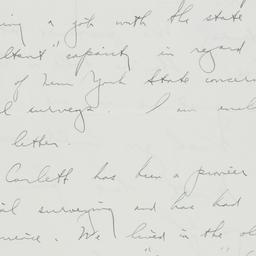 ing a job with the state
ltant" capacity in regard
of New York State concer
l surveys. I am encl
letter.
Corlett has been a pionier
ial surveying and has had
rience. We lived in the ol